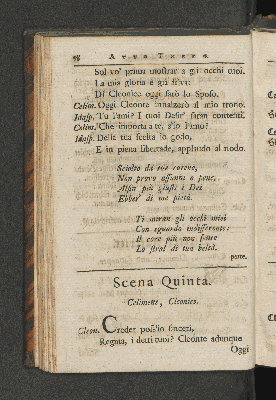 58 ATTO TERZO.
Sol vo' prima mostrar a gli occhi tuoi.
La mia gloria è già
Di Cleonice oggi sarò lo Sposo.
Celim. Oggi Cleonte innalzerò al mio trono.
Idasp. Tu l'ami? I tuoi Desir' saran contenti.
Celim. Che importa a te, s'io l'amo?
Idasp. Della tua scelta io godo,
E in piena libertade, applaudo al nodo.
Sciolto da tue catene,
Non provo affanni o pene,
Alfin più giusti i Dei
Ebber' di me pietà.
Ti miran gli occhi miei
Con sguardo indifferente:
Il core più non sente
Lo stral di tua beltà.
parte.
Scena Quinta.
Celimene, Cleonice.
Cleon. Creder poss'io sinceri,
Regina, i detti tuoi? Cleonte adunque
Oggi